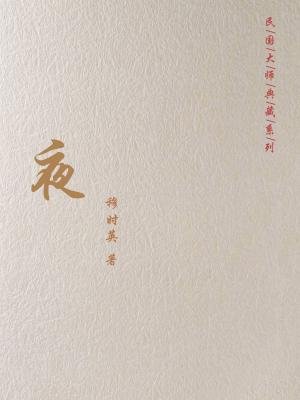 民|国|大|师|典|藏|系|列
夜
穆时英 著